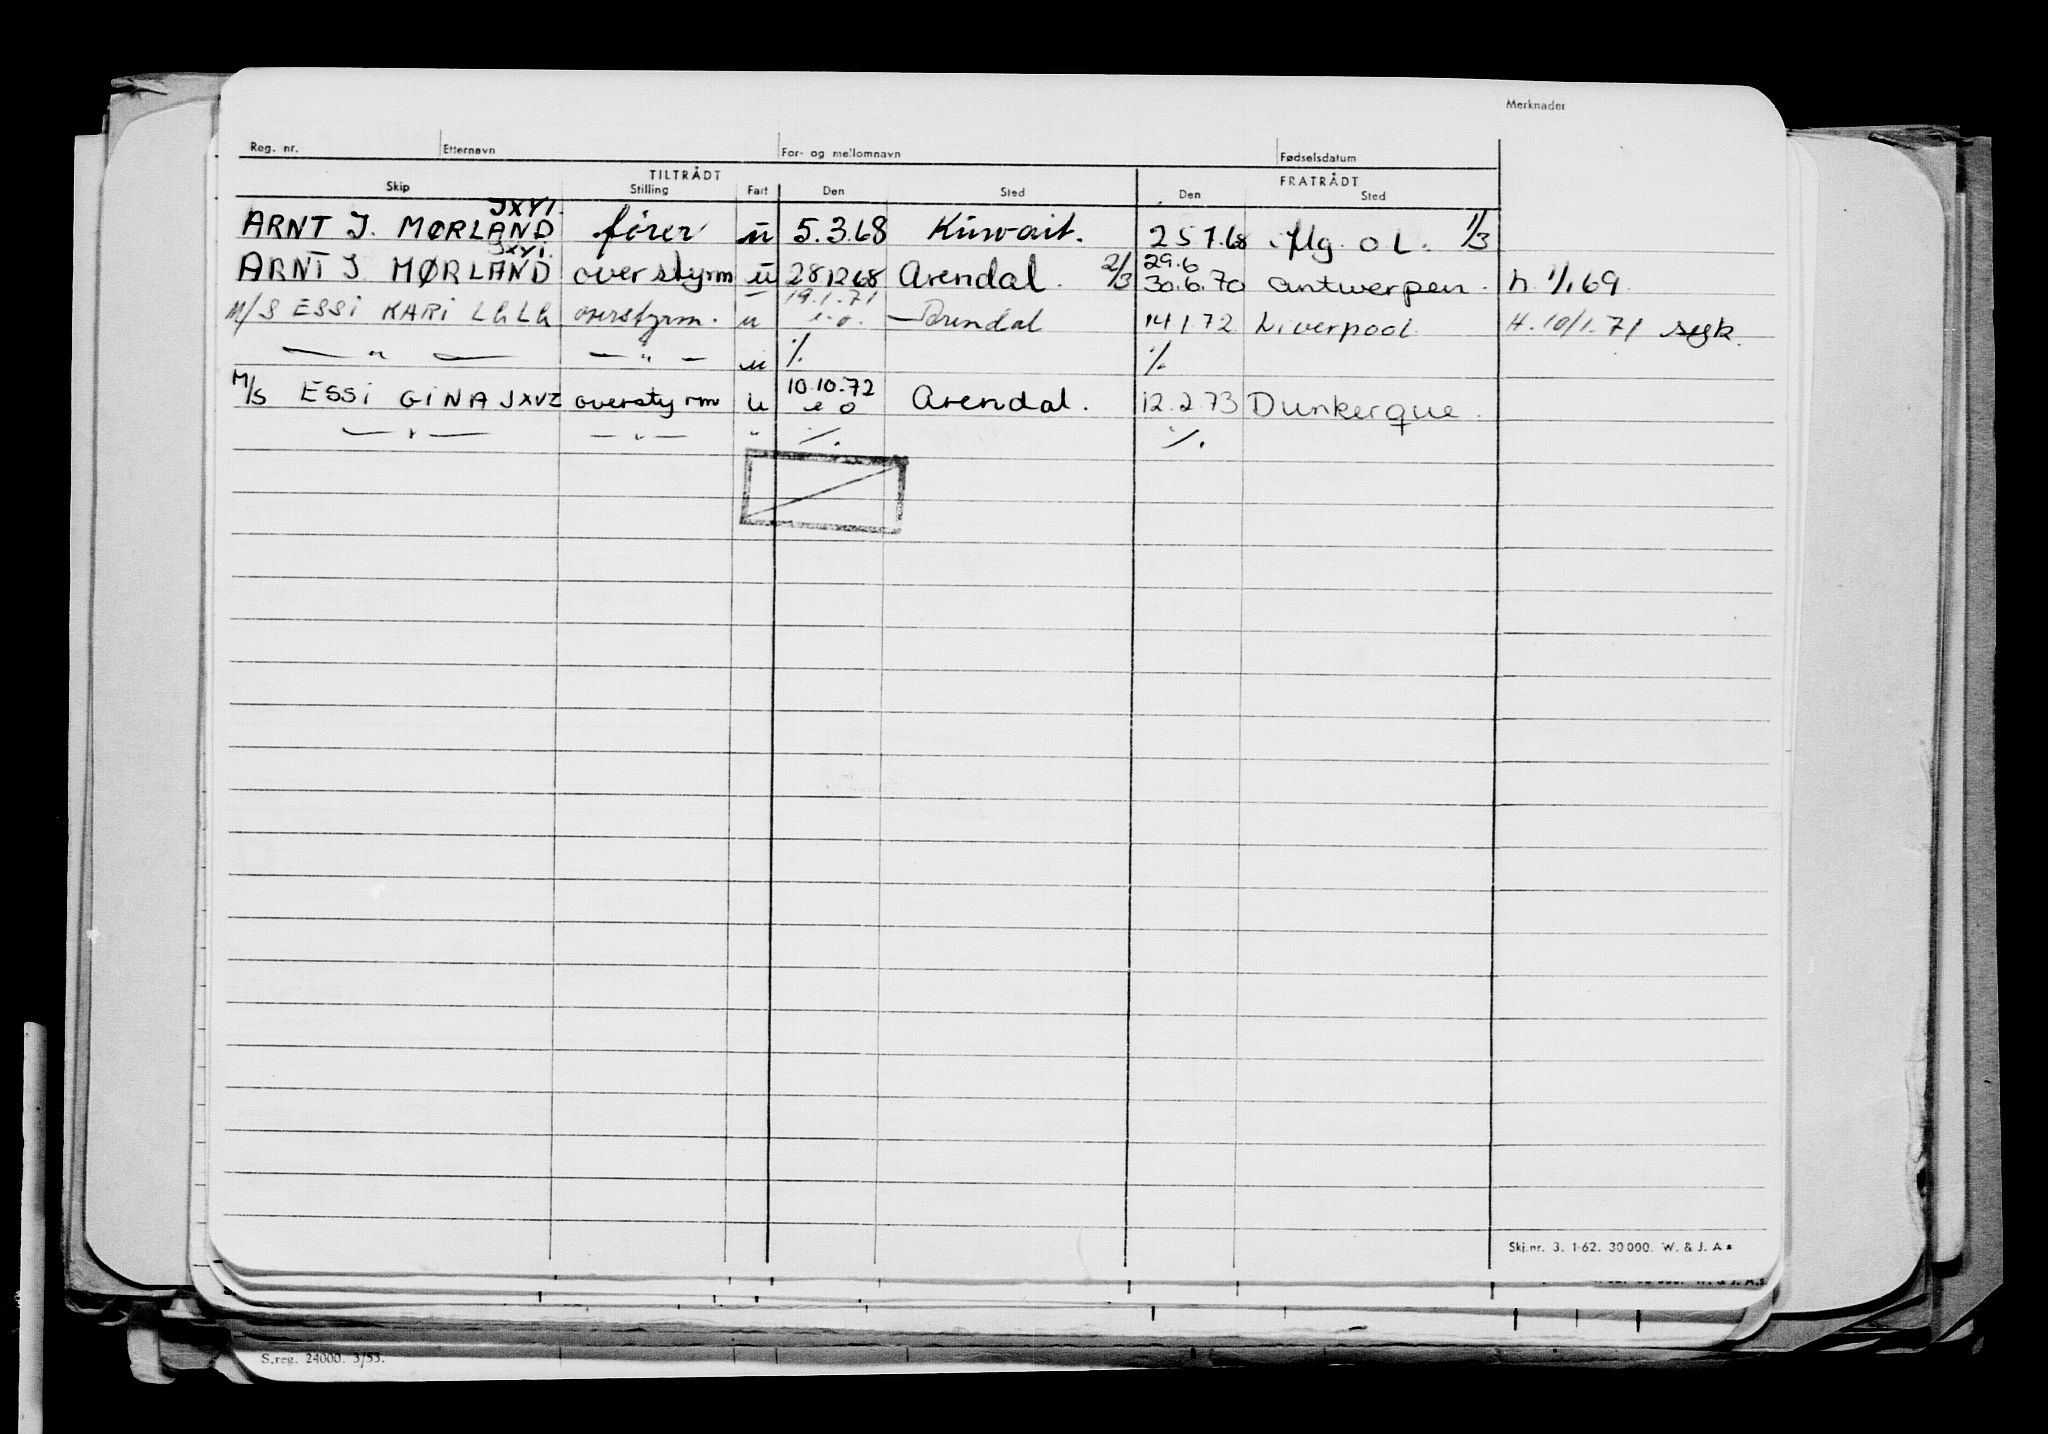 Merknader
Reg. nr. Etternavn For- og mellomnavn Fødselsdatum
TILTRÅDT FRATRÅDT
Skip Stilling Fart Den Sted Den Sted
JXYI.
ARNT J. MØRLAND fører u 5.3.68 Kuwait. 25 7.68 o L. 1/3
JXYI.
ARNT J MØRLAND overstyrm u 28 12 68 Arendal. 2/3 29.6 30.6.70 Antwerpen. h 1/1 69.
19.1.71
M/S ESSI KARI LGLG overstyrm. u e.o. Arendal 14 1 72 Liverpool. H. 10/1.71 syk.
— " — — " — u % %
10.10.72
M/S ESSI GINA JXVZ overstyrm u e o Arendal. 12.2 73 Dunkerque.
— " — — " — " %. %.
Skj.nr. 3. 1-62. 30 000. W. & J. A.s
S.reg. 24000. 3/53.